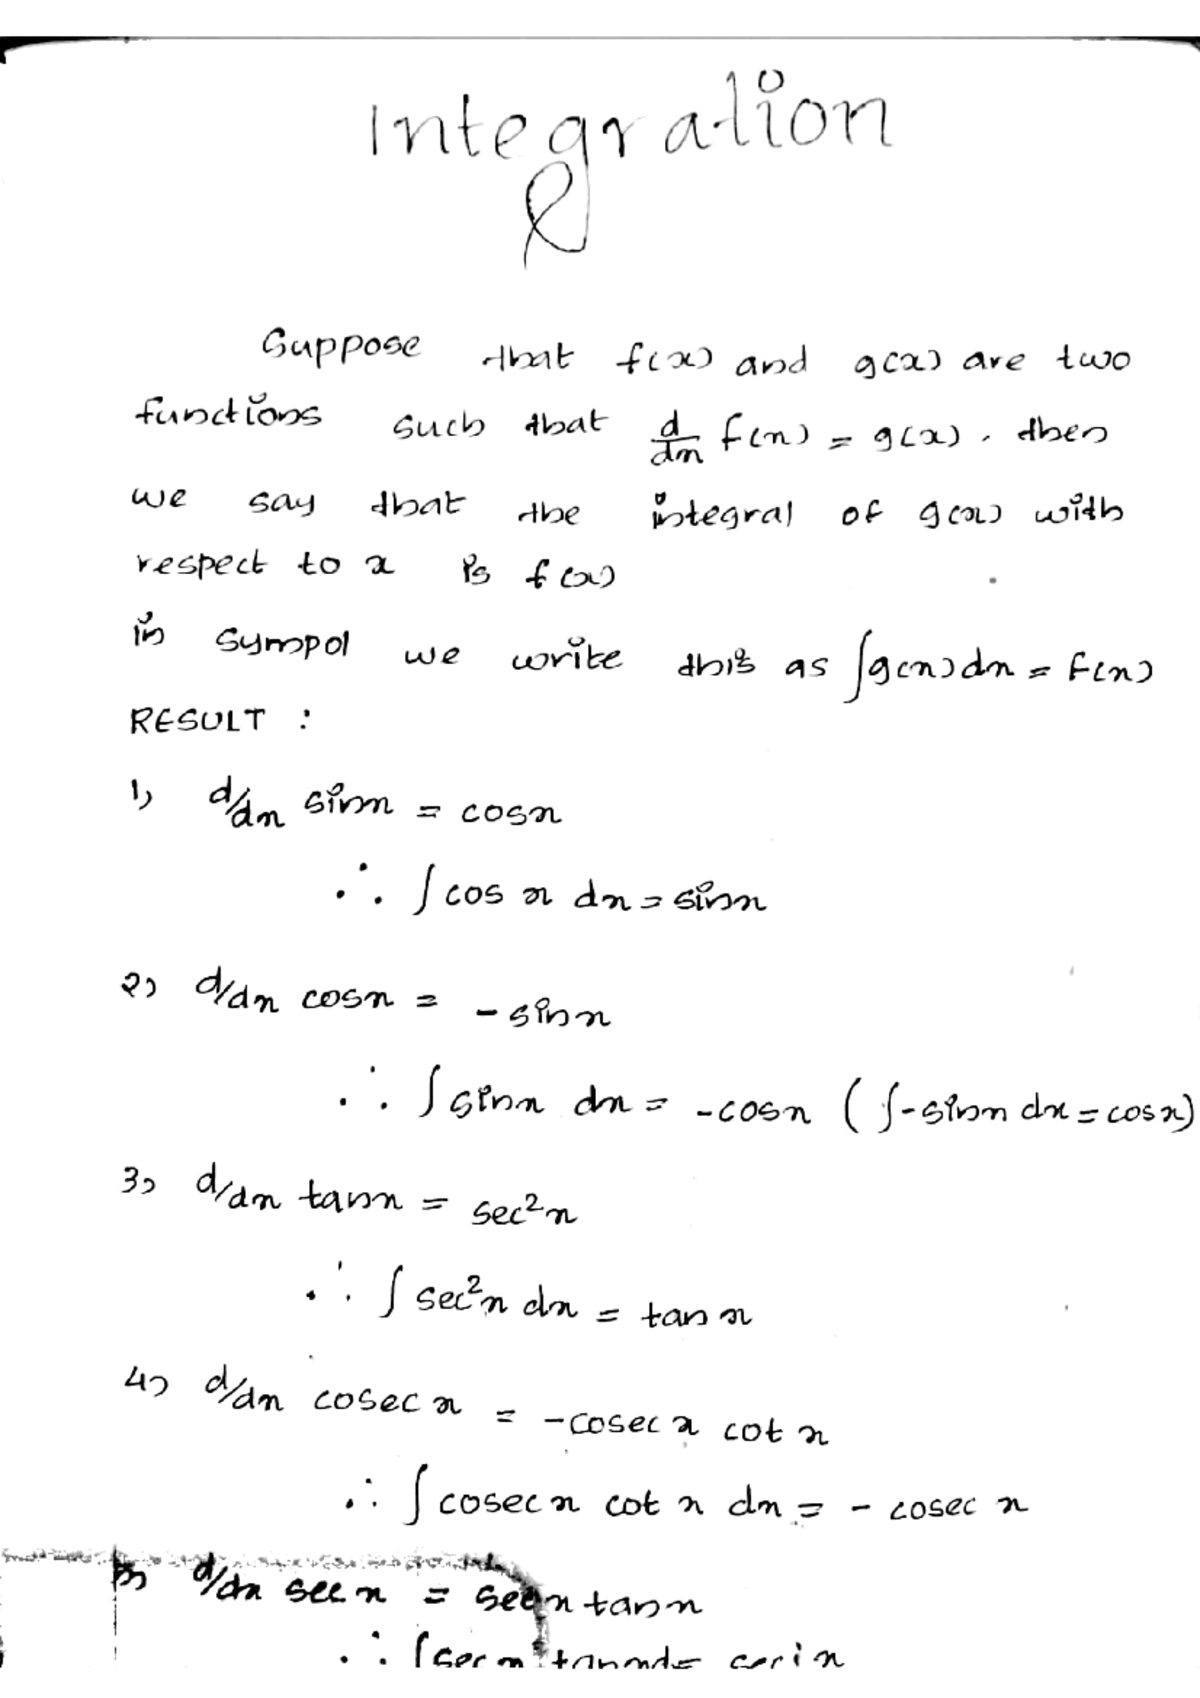 Integration
Suppose that f(x) and g(x) are two
functions such that d/dx f(x) = g(x). then
we say that the integral of g(x) with
respect to x is f(x)
in sympol we write this as ∫g(x)dx = f(x)
RESULT :
1) d/dx sinx = cosx
∴ ∫cos x dx = sinx
2) d/dx cosx = -sinx
∴ ∫sinx dx = -cosx (∫-sinx dx = cosx)
3) d/dx tanx = sec²x
∴ ∫sec²x dx = tan x
4) d/dx cosec x = -cosec x cot x
∴ ∫cosec x cot x dx = - cosec x
5) d/dx sec x = secx tanx
∴ ∫sec x tanx dx =